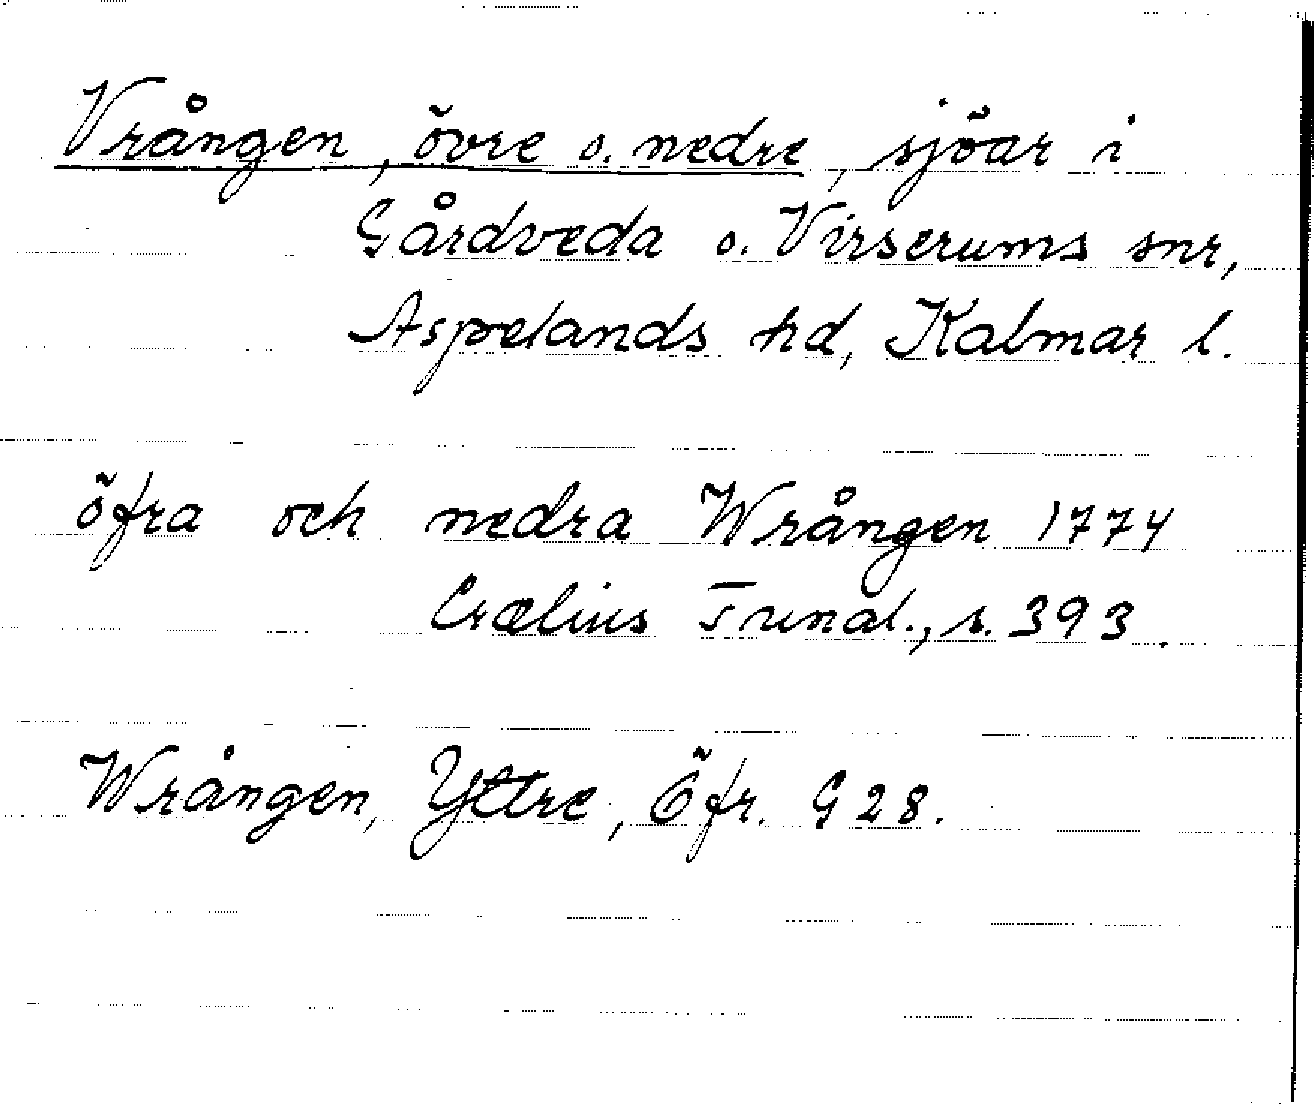 Vrången, övre o. nedre, sjöar i
Gårdveda o. Virserums snr,
Aspelands hd, Kalmar l.
öfra och nedra Wrången 1774
Crælius Tunal., s. 393.
Wrången, Yttre, Öfr. G 28.